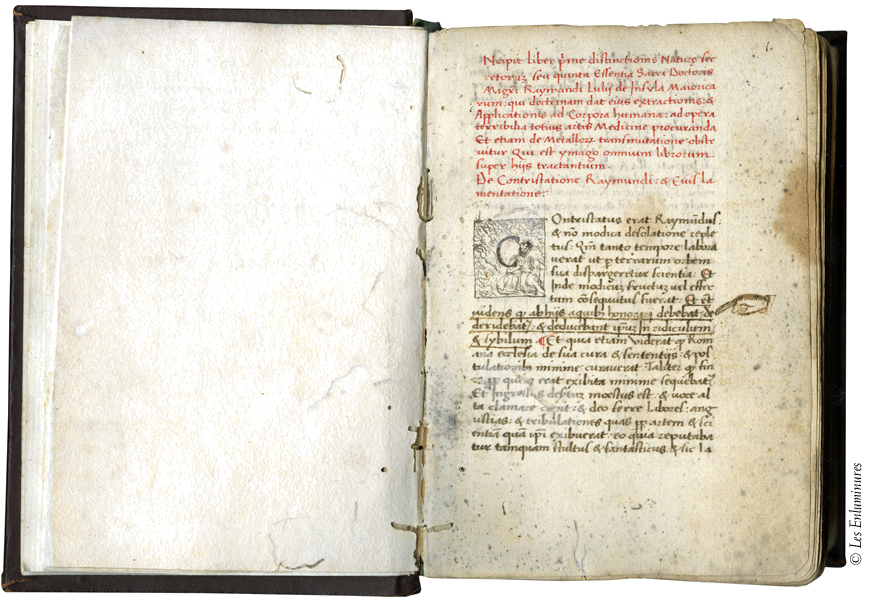 Ncipit liber p̄me distinctionis Naturę sec
retoruꝫ seu quinta Essentia Sacri Doctoris
Magr̄i Raymundi Lulij de Insola Maiorica
rum: qui doctrinam dat eius extractionis: &
Applicationis ad Corpora humana: ad opera
terribilia totius artis Medicine procuranda
Et etiam de Metalloꝝ transmutatione obstr
uitur Qui est ymago omnium librorum
super hijs tractantium.
De Contristatione Raymundi: & Eius la
mentatione:
COntristatus erat Raymūdus:
& nō modica desolatione reple
tus: Qm̄ tanto tempore labora
uerat ut p terrarum orbem
sua dispargeretur scientia: Et
Inde modicuꝫ fructuꝫ uel effec
tum cōsequutus fuerat: Et et
uidens q̄ ab hijs a quibꝫ honorari debebat de
deridebat̄: & deducebant ipsuꝫ In ridiculum
& sybilum ¶ Et quia etiam Viderat q̄ Rom
ana ecclesia de sua cura & sententijs & pos
tulationibꝫ minime curauerat Taliter q̄ fin
erat exibita minime sequebat̄
Et moestus est & uoce al
ta clamare cepit: & deo ferre labores: ang
ustias: & tribulationes quas pp artem & sci
entiā quā ip̄i exibuerat eo quia reputaba
tur tamquam stultus & fantasticus & sic la
© Les Enluminures